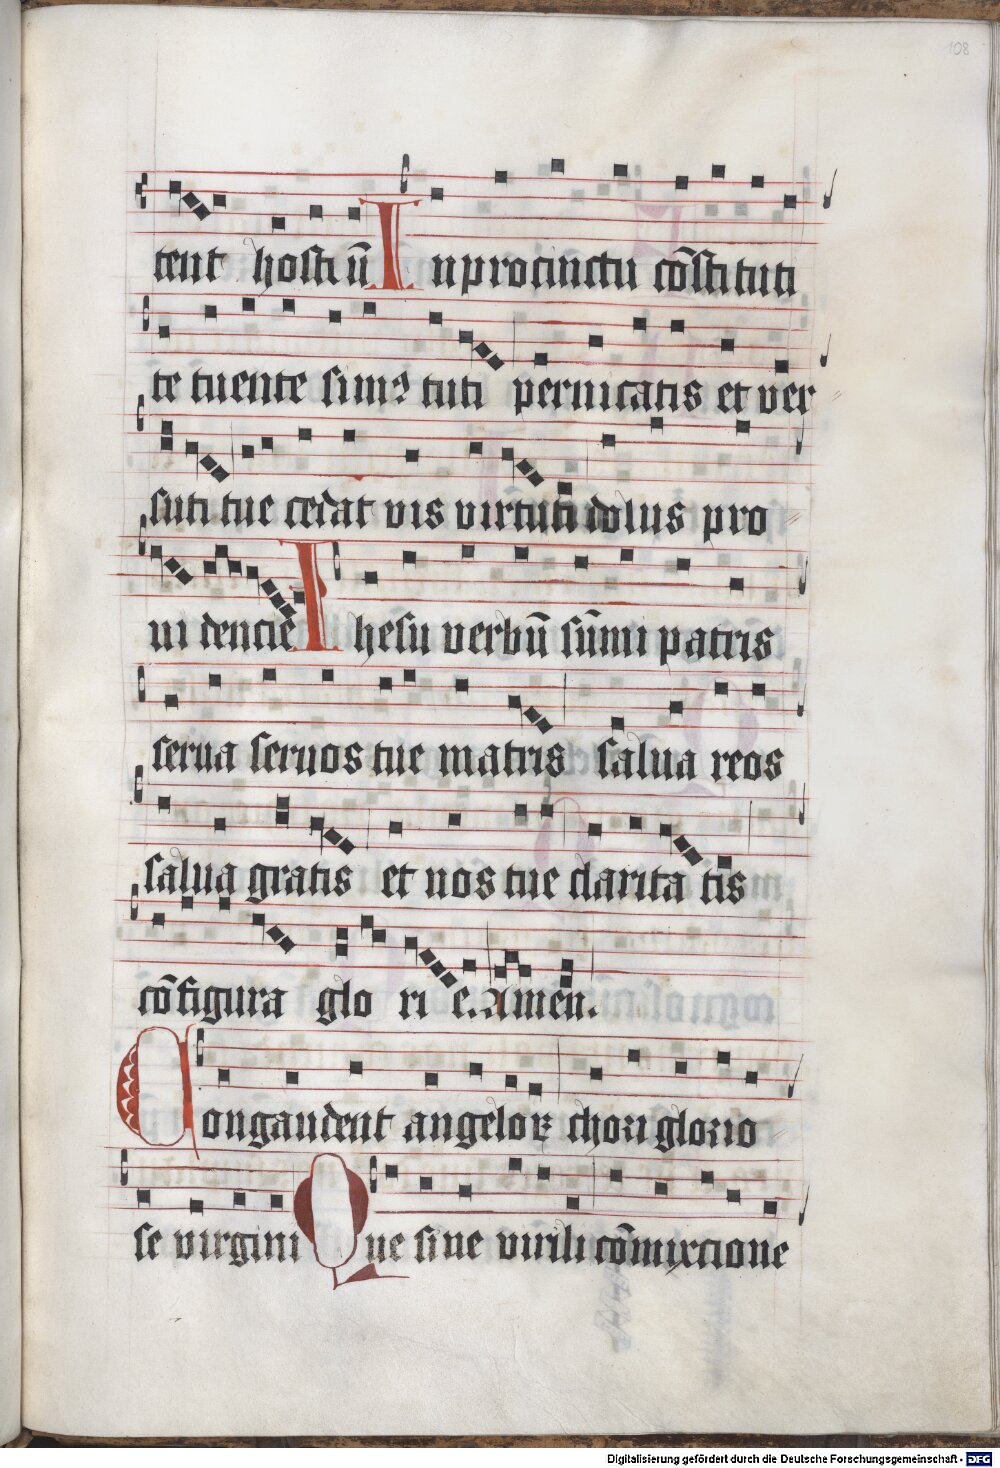 108
tent hostiū In procinctu cōstituti
te tuente simꝰ tuti pervicatis et ver
suti tue cedat vis virtuti dolus pro
vi dencie Ihesu verbū sūmi patris
serua seruos tue matris salua reos
salua gratis et nos tue clarita tis
cōfigura glo ri e. Amen.
Congaudent angeloꝝ chori glorio
se virgini Que sine virili cōmixtione
Digitalisierung gefördert durch die Deutsche Forschungsgemeinschaft - DFG